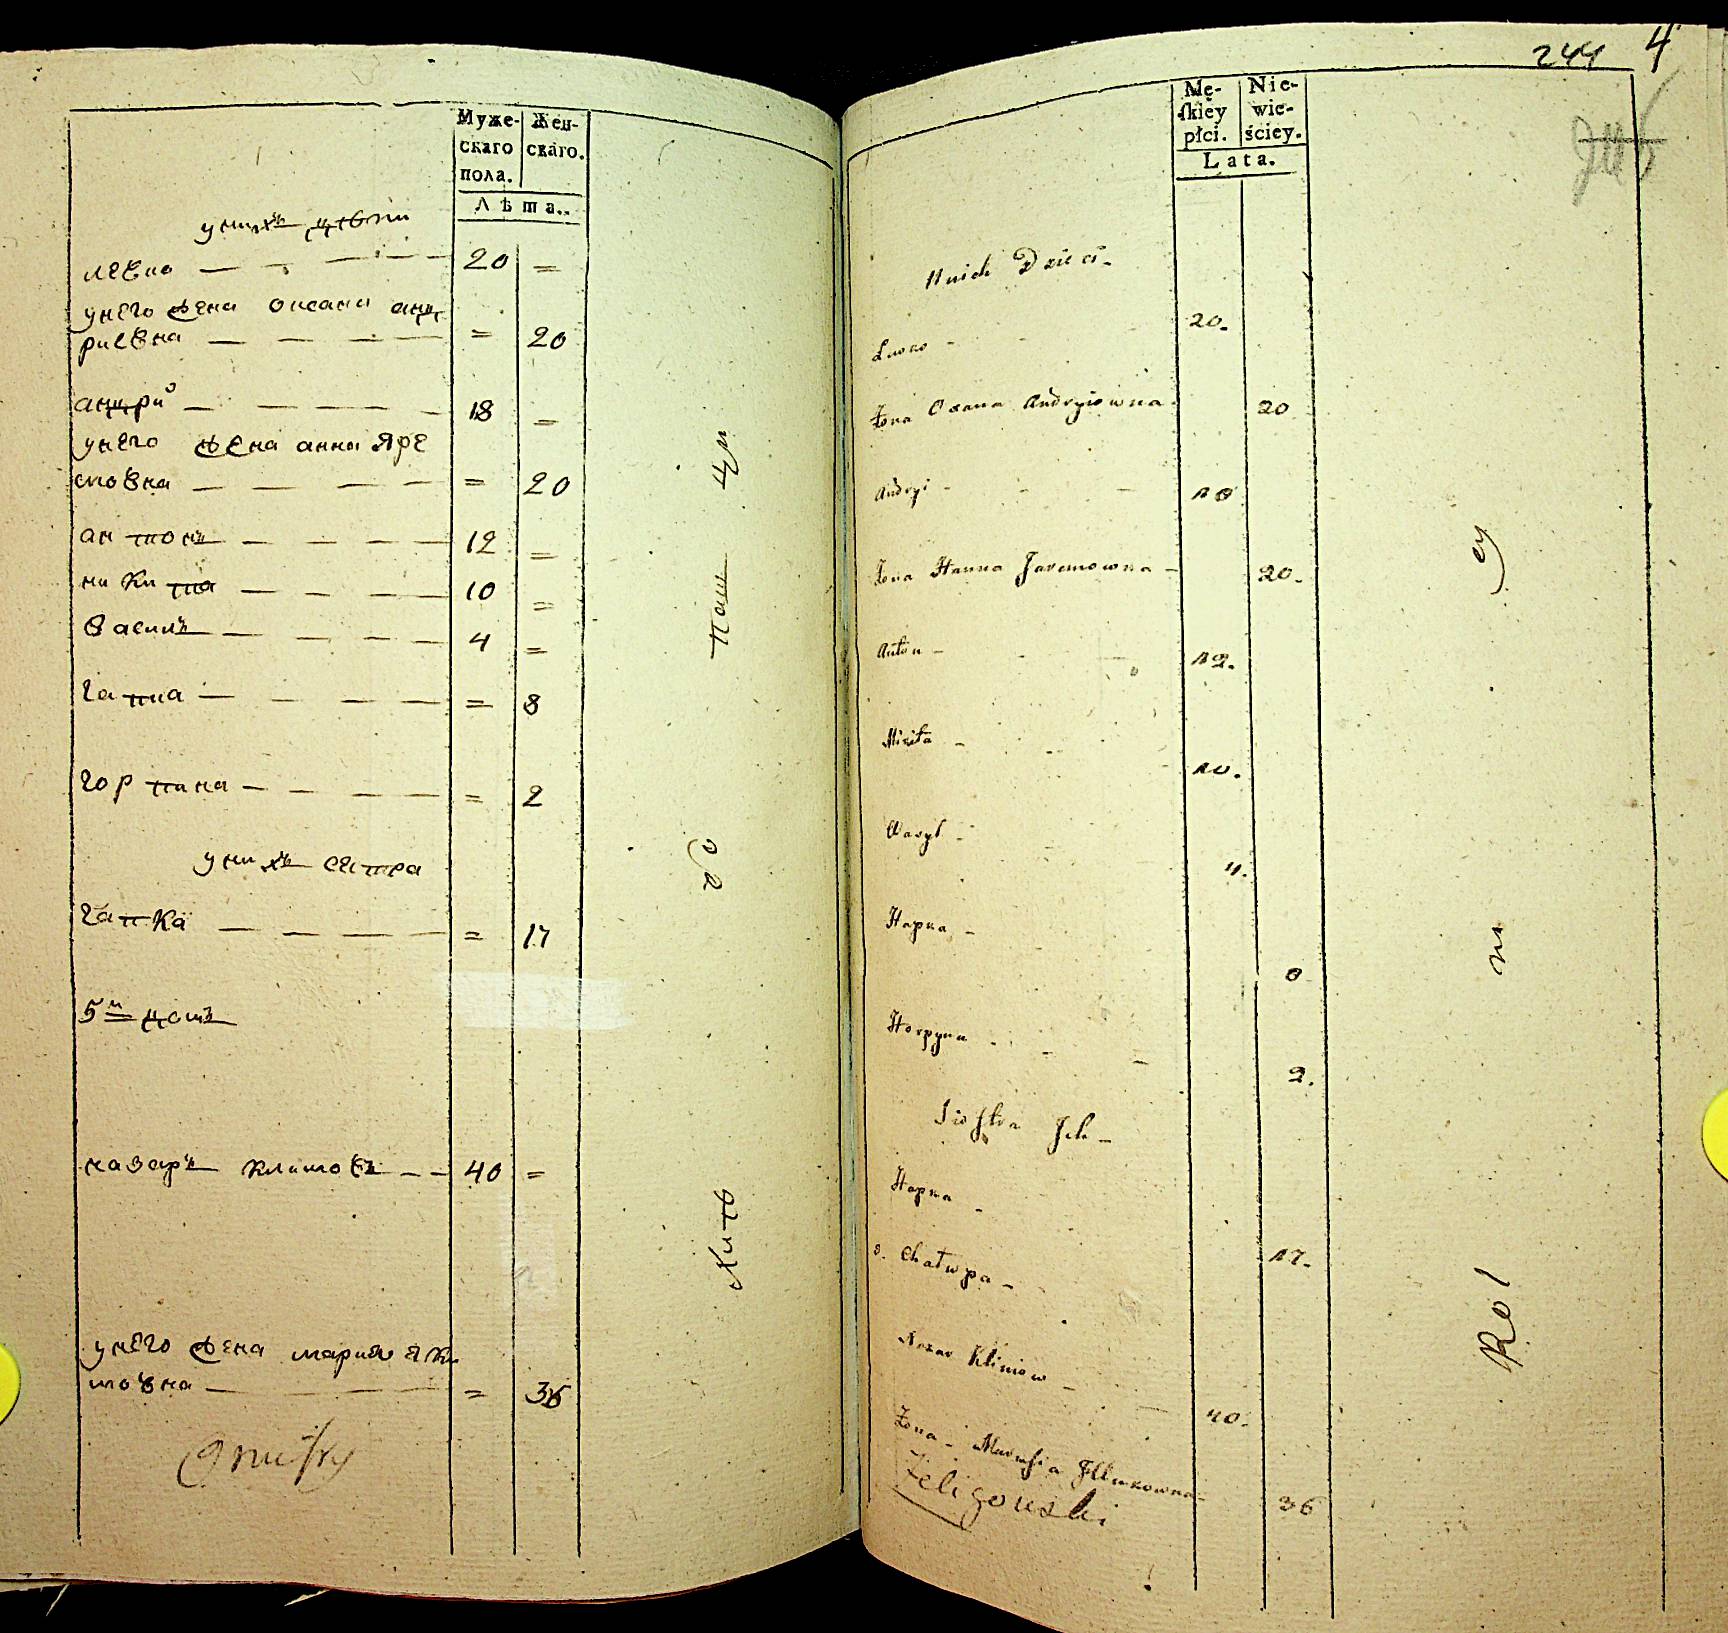 Муже-
скаго
пола.
Жен-
скаго.
Лѣта..
унихъ дѣти
левко — — — — 20 =
унего жена оксана анд
риевна — — — — = 20
андрий — — — — 18 =
унего жена анна яре
мовна — — — — = 20
антонъ — — — — 12 =
никита — — — — 10 =
василь — — — — 4 =
гапка — — — — = 8
горпина — — — — = 2
унихъ сестра
гапка — — — — = 17
5й домъ
назаръ климовъ — — 40 =
унего жена мария яки
мовна — — — — = 36
244 4
Mę-
skiey
płci.
Nie-
wie-
ściey.
Lata.
Unich Dzieci -
Lewko - - 20.
Żona Oxana Andryiowna 20
Andryi - - - 18
Żona Hanna Jaremowna - 20.
Anton - - - 12.
Mikita - - 10.
Wasyl - 4.
Hapka - 8
Horpyna - - - 2.
Siostra Ich -
Hapka - 17.
5. Chałupa -
Nazar Klimow - - 40.
Żona - Marusia 36
Żeligowski